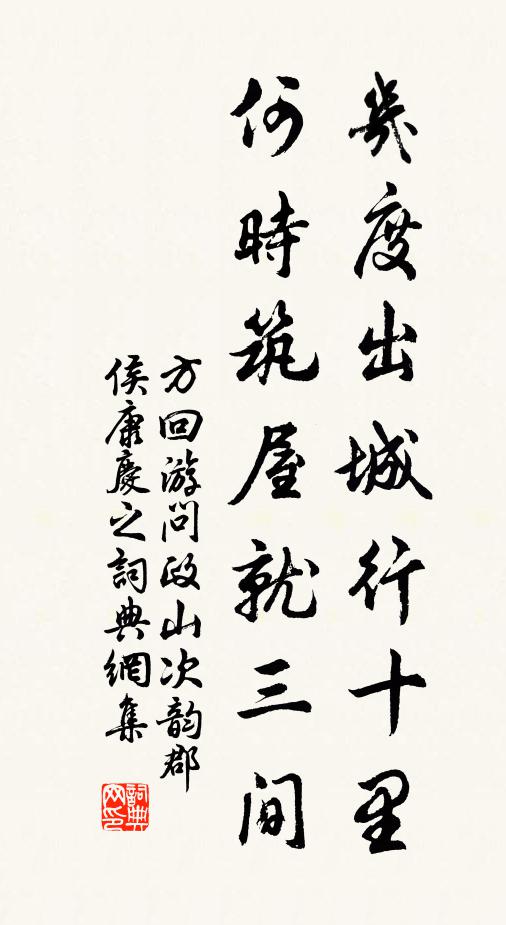 幾度出城行十里
何時筑屋就三间
方回游问政山次韵郡
侯康慶之詞典網集
詞典网印